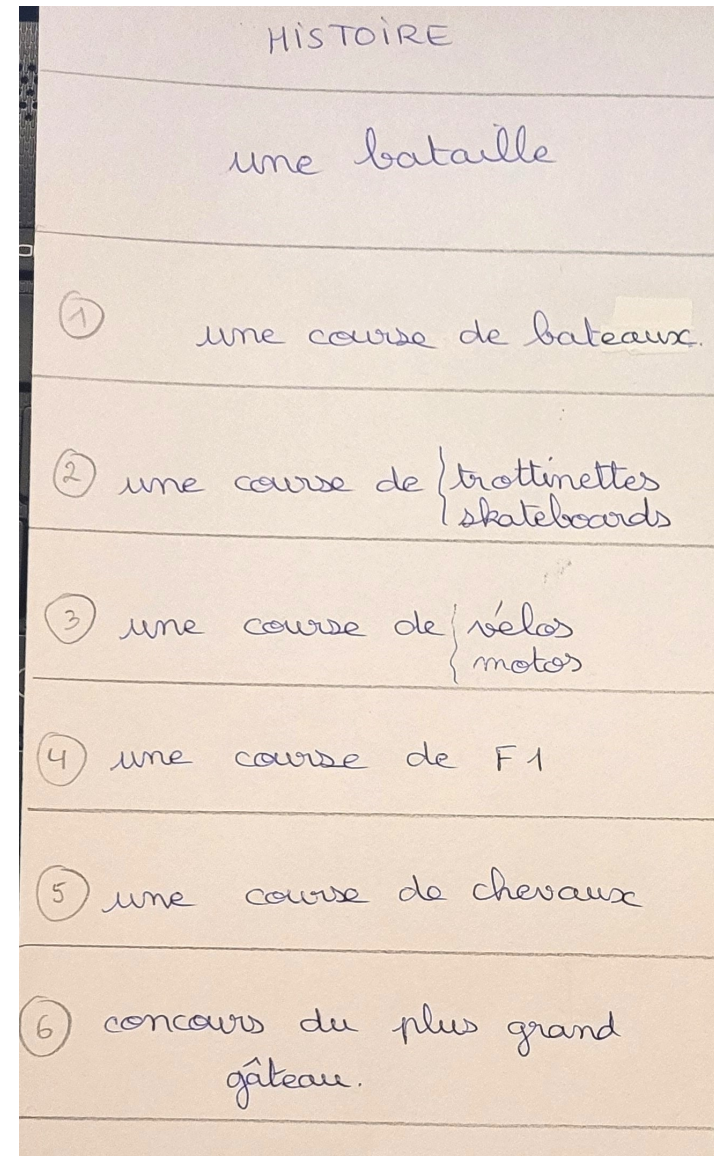 HISTOIRE
une bataille
1 une course de bateaux.
2 une course de { trottinettes
skateboards
3 une course de { vélos
motos
4 une course de F1
5 une course de chevaux
6 concours du plus grand
gâteau.